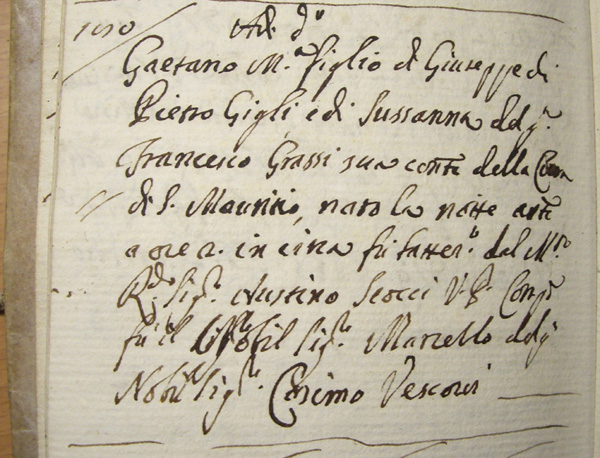 Adi d.º
Gaetano M.ª figlio di Giuseppe di
Pietro Gigli e di Sussanna del q.
Francesco Grassi sua cons.te della Cura
di S. Mauritio, nato la notte ant.te
a ore 2. in circa fù batt.º dal M.to
R.do Sig.r Austino Scocci V.C. Comp.e
fù il Nobil Sig.r Marcello del q.
Nobil Sig.r Cosimo Vescovi